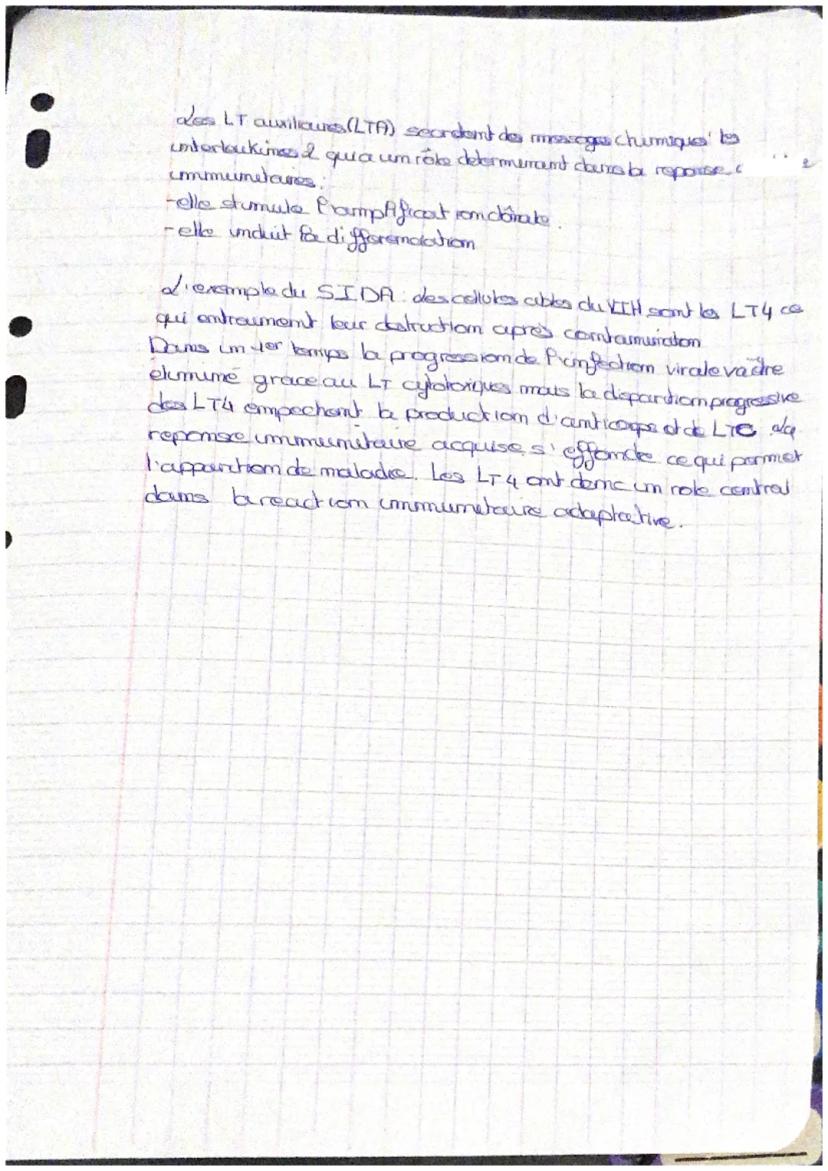 Les LT auxiliaires (LTA) secretent des messages chimiques les
interleukines 2 qui a un rôle determinant dans la reponse
immunitaires :
-elle stimule l'amplification clonale.
-elle induit la differenciation
L'exemple du SIDA : des cellules cibles du VIH sont les LT4 ce
qui entrainent leur destruction après contamination
Dans un 1er temps la progression de l'infection virale va être
eliminé grace au LT cytotoxiques mais la disparition progressive
des LT4 empechent la production d'anticorps et de LTC. La
reponse immunitaire acquise s'effondre ce qui permet
l'apparition de maladie. Les LT4 ont donc un role central
dans la reaction immunitaire adaptative.